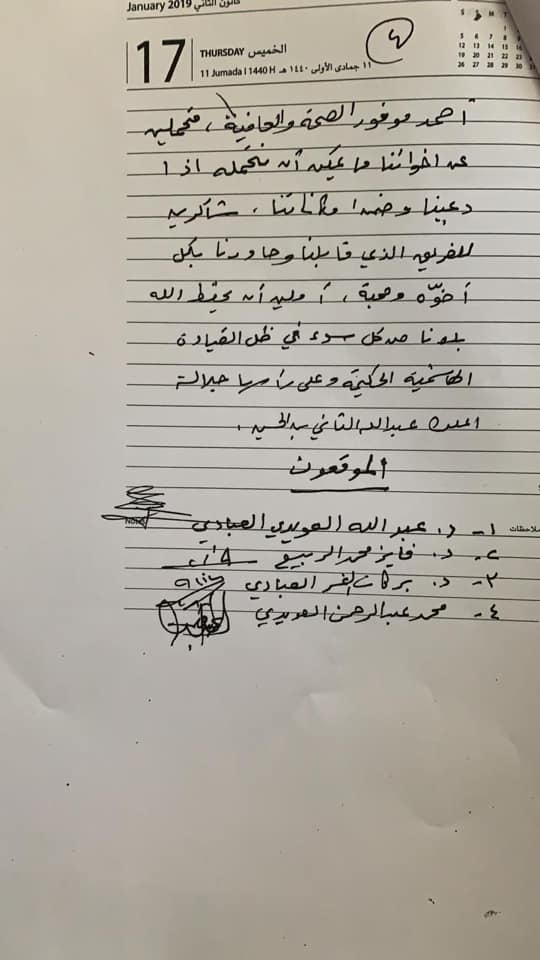 January 2019 كانون الثاني
17
THURSDAY الخميس
11 Jumada I 1440 H ١١ جمادى الأولى ١٤٤٠ هـ
٤
S S M T
5 6 7 8
12 13 14 15
19 20 21 22
26 27 28 29
أحمد موفور الصحة والعافية، متحملين
عن اخواننا ما يمكن أن نتحمله اذا
دعينا وضمن امكاناتنا، شاكرين
للفريق الذي قابلنا وحاورنا بكل
أخوّه ومحبة، آملين أن يحفظ الله
بلدنا من كل سوء في ظل القيادة
الهاشمية الحكيمة وعلى رأسها جلالة
الملك عبدالله الثاني بن الحسين.
الموقعون
ملاحظات
Notes
١- د. عبد الله العويدي العبادي
٢- د. فايز محمد الربيع
٣- د. بركات النمر العبادي
٤- محمد عبدالرحمن العويدي